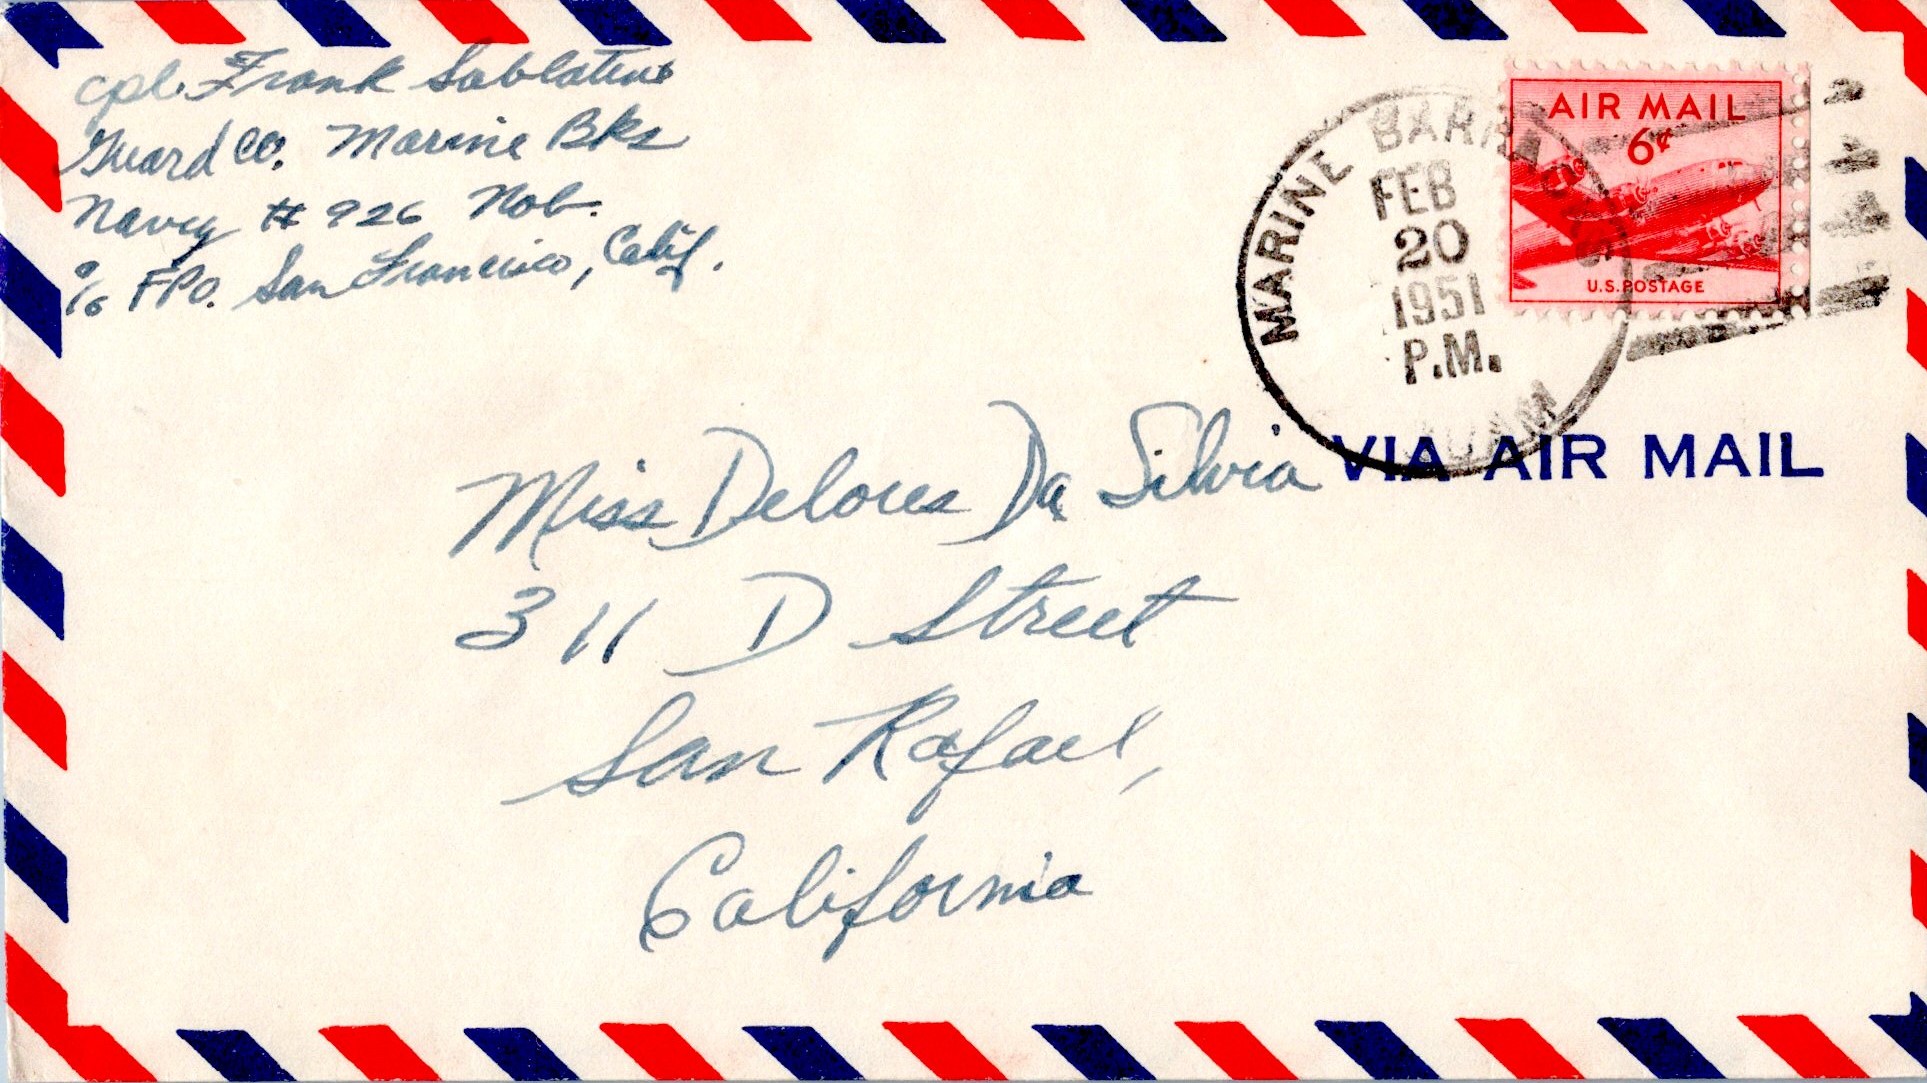 Cpl. Frank Sablatura
Guard Co. Marine Bks
Navy # 926 Nob.
c/o FPO. San Francisco, Calif.
MARINE BARRACKS
FEB
20
1951
P.M.
GUAM
AIR MAIL
6¢
U.S. POSTAGE
VIA AIR MAIL
Miss Delores Da Silvia
311 D Street
San Rafael,
California